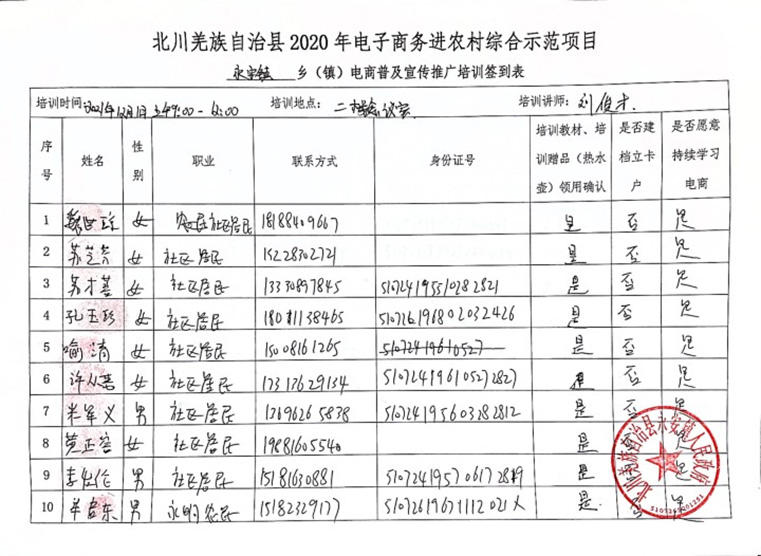 北川羌族自治县2020年电子商务进农村综合示范项目
永安镇 乡（镇）电商普及宣传推广培训签到表
培训时间: 培训地点: 二楼会议室 培训讲师: 刘俊才
序号 姓名 性别 职业 联系方式 身份证号 培训教材、培训赠品（热水壶）领用确认 是否建档立卡户 是否愿意持续学习电商
1 女 社区居民 18188409667 是 否 是
2 女 社区居民 15228302721 是 否 是
3 女 社区居民 13330897845 是 否 是
4 孔玉珍 女 社区居民 18011138465 510726196802032426 是 否 是
5 喻清 女 社区居民 15008161265 51072419610527 是 否 是
6 女 社区居民 510724196105272827 是 否 是
7 男 社区居民 510724195603282812 是 否 是
8 女 社区居民 19881605540 是
9 男 社区居民 15181630881 是
10 男 永明农民 15182329177 是
北川羌族自治县永安镇人民政府